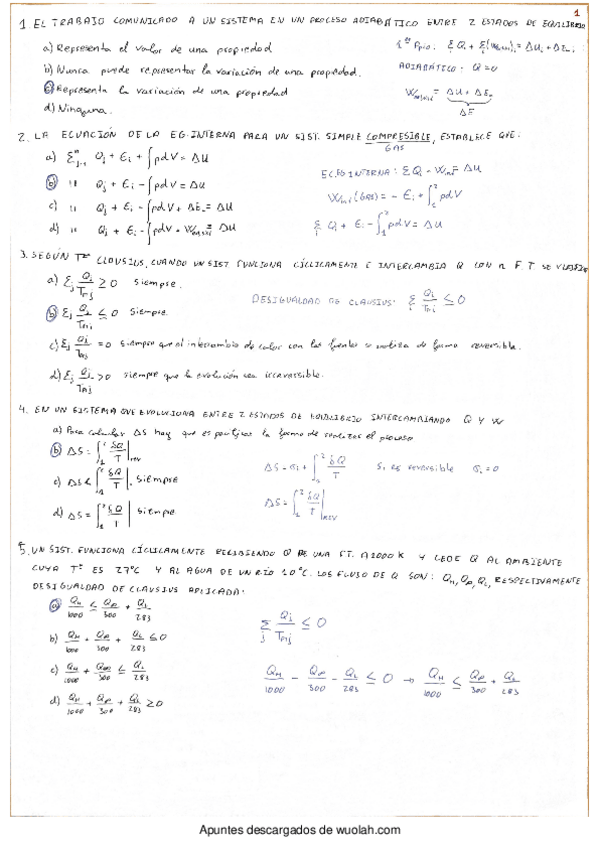 1
1 EL TRABAJO COMUNICADO A UN SISTEMA EN UN PROCESO ADIABÁTICO ENTRE 2 ESTADOS DE EQUILIBRIO
a) Representa el valor de una propiedad
b) Nunca puede representar la variación de una propiedad.
c) Representa la variación de una propiedad
d) Ninguna.
ADIABÁTICO: Q = 0
ΔE
2. LA ECUACIÓN DE LA EG. INTERNA PARA UN SIST. SIMPLE COMPRESIBLE, ESTABLECE QUE:
GAS
a) Σ Qj + Ei + ∫pdV = ΔU
b) " Qj + Ei - ∫pdV = ΔU
c) " Qj + Ei - ∫pdV + ΔEm = ΔU
d) " Qj + Ei - ∫pdV + Wext = ΔU
EC. EG INTERNA: Σ Qi - Wint = ΔU
Wint (GAS) = - Ei + ∫₁² pdV
Σ Qi + Ei - ∫₁² pdV = ΔU
3. SEGÚN Tª CLAUSIUS, CUANDO UN SIST FUNCIONA CÍCLICAMENTE E INTERCAMBIA Q CON n F.T SE
a) Σj Qj/TFTj ≥ 0 siempre.
b) Σj Qj/TFTj ≤ 0 siempre.
c) Σj Qj/TFTj = 0 siempre que el intercambio de calor con las fuentes se realiza de forma reversible.
d) Σj Qj/TFTj > 0 siempre que la evolución sea irreversible.
DESIGUALDAD DE CLAUSIUS: Σ Qi/TFTi ≤ 0
4. EN UN SISTEMA QUE EVOLUCIONA ENTRE 2 ESTADOS DE EQUILIBRIO INTERCAMBIANDO Q Y W
a) Para calcular ΔS hay que especificar la forma de realizar el proceso
b) ΔS = ∫₁² δQ/T |REV
c) ΔS < ∫₁² δQ/T, siempre
d) ΔS = ∫₁² δQ/T | siempre
ΔS = σi + ∫₁² δQ/T
Si es reversible σi = 0
ΔS = ∫₁² δQ/T |REV
5. UN SIST. FUNCIONA CÍCLICAMENTE RECIBIENDO Q DE UNA FT. A 1000 K Y CEDE Q AL AMBIENTE
CUYA Tª ES 27ºC Y AL AGUA DE UN RÍO 10ºC. LOS FLUJO DE Q SON: QH, QP, QL, RESPECTIVAMENTE
DESIGUALDAD DE CLAUSIUS APLICADA:
a) QH/1000 ≤ QP/300 + QL/283
b) QH/1000 + QP/300 + QL/283 ≤ 0
c) QH/1000 + QP/300 ≤ QL/283
d) QH/1000 + QP/300 + QL/283 ≥ 0
Σj Qj/TFTj ≤ 0
QH/1000 - QP/300 - QL/283 ≤ 0 → QH/1000 ≤ QP/300 + QL/283
Apuntes descargados de wuolah.com